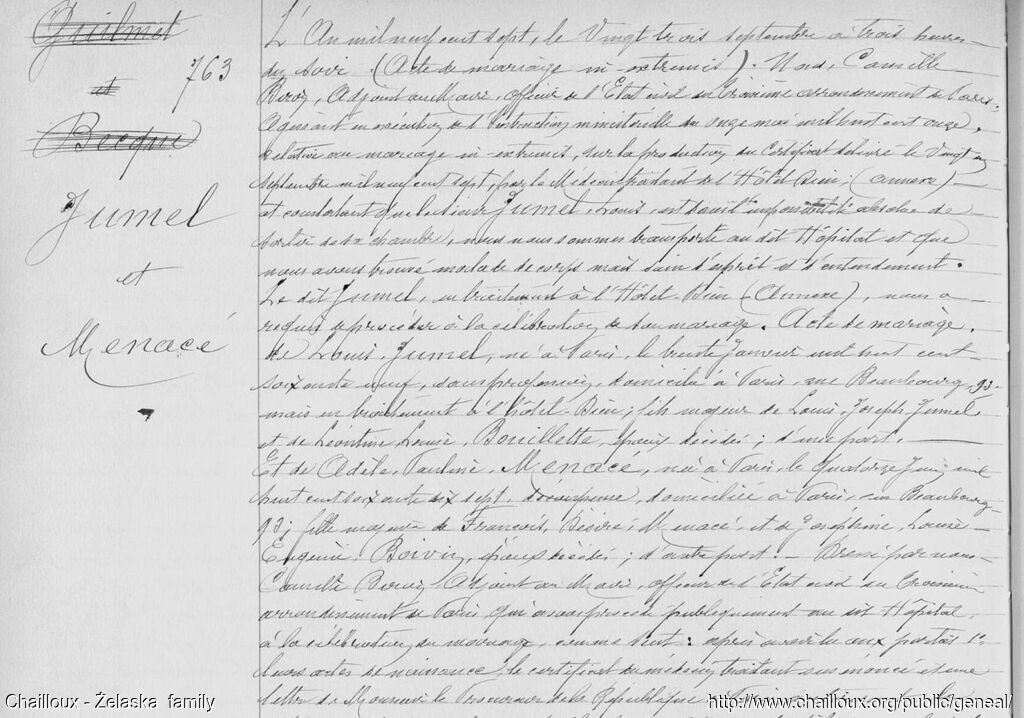 Guilmet
763
et
Becque
Jumel
et
Menacé
L'An mil neuf cent sept, le Vingt trois septembre à trois heures
du soir. (Acte de mariage in-extremis). Nous, Camille
Adjoint au Maire, officier de l'Etat civil du troisième arrondissement de Paris,
Agissant en exécution de l'instruction ministérielle du onze mai mil huit cent onze,
relative au mariage in-extremis, sur la production du Certificat délivré le Vingt
septembre mil neuf cent sept, par le Médecin traitant de l'Hôtel-Dieu, (annexe)
et constatant que le sieur Jumel, Louis, est dans l'impossibilité absolue de
sortir de sa chambre, nous nous sommes transporté au dit Hôpital et que
nous avons trouvé malade de corps mais sain d'esprit et d'entendement.
Le dit Jumel, en traitement à l'Hôtel-Dieu (Annexe), nous a
requis de procéder à la célébration de son mariage. Acte de mariage.
de Louis, Jumel, né à Paris, le trente Janvier mil huit cent
soixante neuf, sans profession, domicilié à Paris, rue Beaubourg, 93.
mais en traitement à l'hôtel-Dieu; fils majeur de Louis, Joseph, Jumel
et de Léontine Louise, Bouillette, époux décédés; d'une part.
Et de Adèle, Pauline, Menacé, née à Paris, le quatorze Juin mil
huit cent soixante six sept, domiciliée à Paris, rue Beaubourg
93; fille majeure de François, Désiré, Menacé, et de Joséphine Louise
Eugénie, Boivin, époux décédés; d'autre part. - Dressé par nous
Camille Adjoint au Maire, officier de l'Etat civil du troisième
arrondissement de Paris, qui avons procédé publiquement au dit Hôpital,
à la célébration du mariage, comme suit: après avoir lu aux parties 1°
leurs actes de naissance, le certificat du médecin traitant sus énoncé et une
lettre de Monsieur le Procureur de la République
Chailloux - Żelaska family
http://www.chailloux.org/public/geneal/